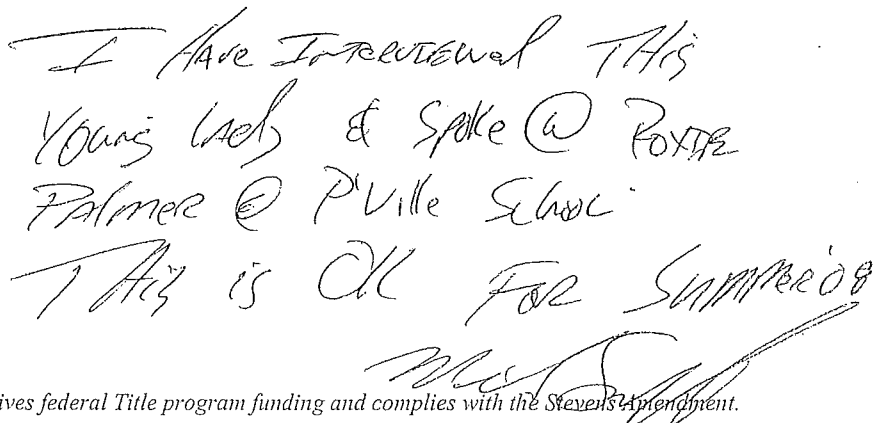 I Have Interviewed This
Young Lady & Spoke @
Palmer @ P'Ville School
This is OK For Summer '08
ives federal Title program funding and complies with the Stevens Amendment.